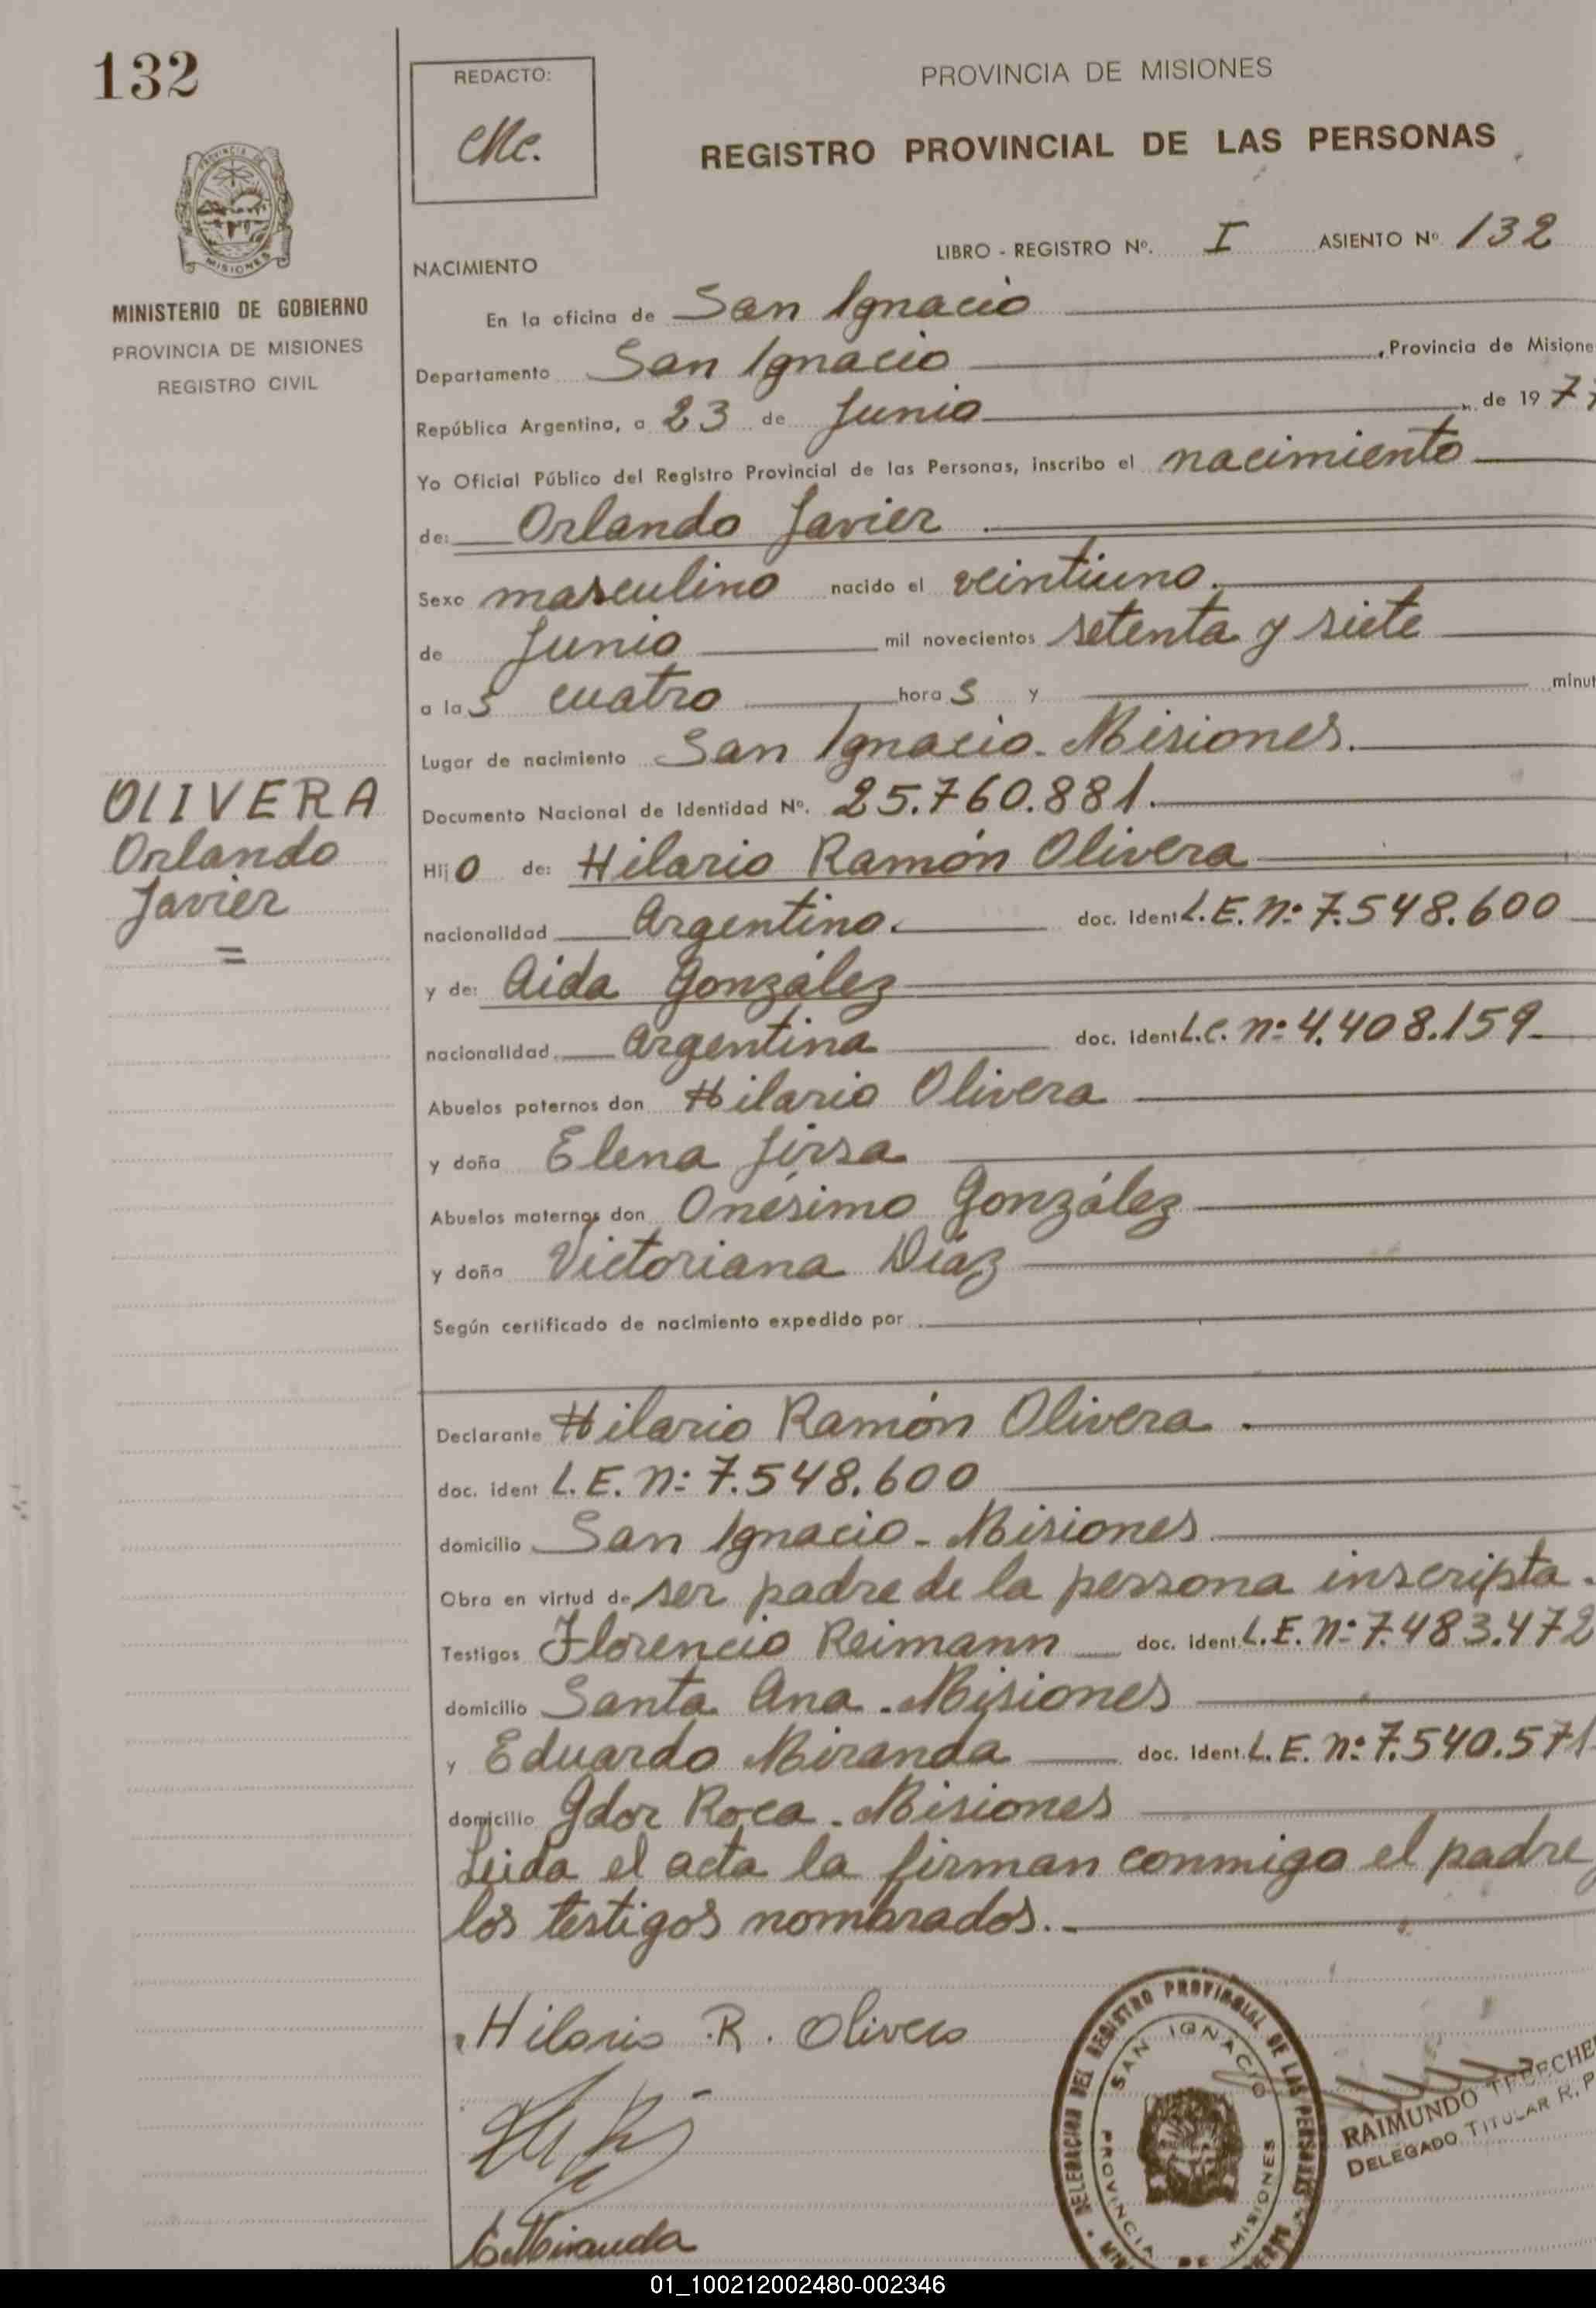 132
REDACTO:
PROVINCIA DE MISIONES
REGISTRO PROVINCIAL DE LAS PERSONAS
PROVINCIA DE
MISIONES
MINISTERIO DE GOBIERNO
PROVINCIA DE MISIONES
REGISTRO CIVIL
LIBRO - REGISTRO Nº. I ASIENTO Nº 132
NACIMIENTO
En la oficina de San Ignacio
Departamento San Ignacio, Provincia de Misione
República Argentina, a 23 de Junio de 197
Yo Oficial Público del Registro Provincial de las Personas, inscribo el nacimiento
de: Orlando Javier
Sexo masculino nacido el veintiuno.
de Junio mil novecientos setenta y siete
a las cuatro horas y minut
Lugar de nacimiento San Ignacio - Misiones.
Documento Nacional de Identidad Nº. 25.760.881.
OLIVERA
Orlando
Javier
=
Hijo de: Hilario Ramón Olivera
nacionalidad Argentino. doc. ident L.E. Nº 7.548.600
y de: Aida González
nacionalidad Argentina doc. ident L.C. nº 4.408.159
Abuelos paternos don Hilario Olivera
y doña Elena Jirsa
Abuelos maternos don Onésimo González
y doña Victoriana Díaz
Según certificado de nacimiento expedido por
Declarante Hilario Ramón Olivera.
doc. ident L.E. Nº 7.548.600
domicilio San Ignacio - Misiones
Obra en virtud de ser padre de la persona inscripta.
Testigos Florencio Reimann doc. ident. L.E. Nº 7.483.472
domicilio Santa Ana - Misiones
y Eduardo Miranda doc. ident. L.E. Nº 7.540.571
domicilio Gdor Roca - Misiones
Leida el acta la firman conmigo el padre y
los testigos nombrados.
Hilario R. Olivera
E Miranda
DELEGACION DEL REGISTRO PROVINCIAL DE LAS PERSONAS
SAN IGNACIO
PROVINCIA DE MISIONES
RAIMUNDO
DELEGADO TITULAR R. P
01_100212002480-002346